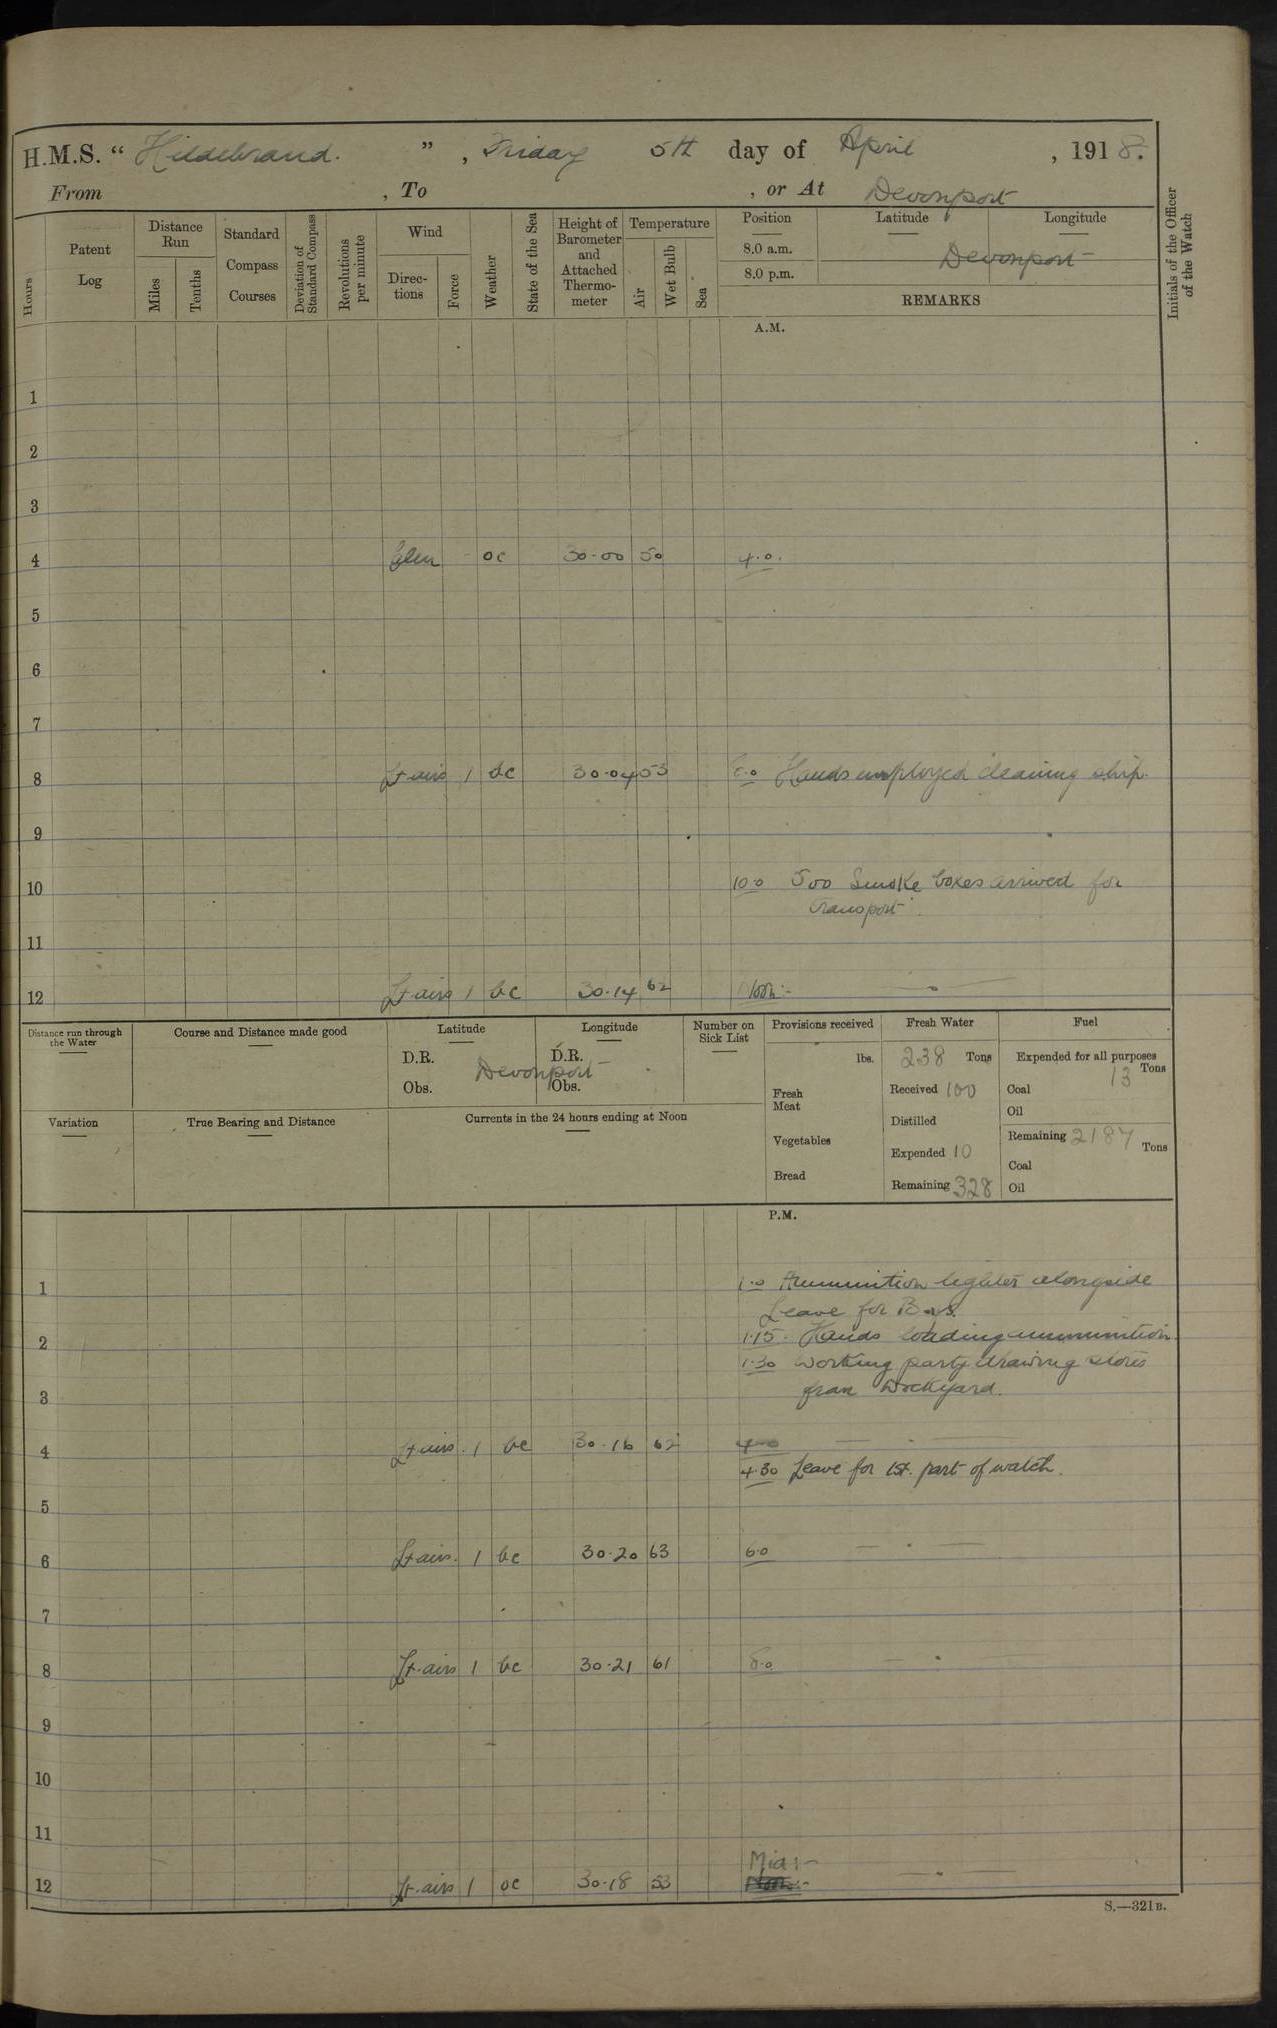 H.M.S. “ Hildebrand. ” , Friday 5th day of April , 1918.
From , To , or At Devonport
Hours
Patent Log
Distance Run
Miles
Tenths
Standard Compass Courses
Deviation of Standard Compass
Revolutions per minute
Wind
Direc-tions
Force
Weather
State of the Sea
Height of Barometer and Attached Thermo-meter
Temperature
Air
Wet Bulb
Sea
Position Latitude Longitude
8.0 a.m.
8.0 p.m.
Devonport
REMARKS
Initials of the Officer of the Watch
A.M.
1
2
3
4 - oc 30.00 50 4.0.
5
6
7
8 Lt airs 1 bc 30.04 53 8.0 Hands employed cleaning ship.
9
10 10.0 500 Smoke boxes arrived for
transport.
11
12 Lt airs 1 bc 30.14 62 Noon:-
Distance run through the Water
Course and Distance made good
Latitude
D.R.
Obs.
Longitude
D.R.
Obs.
Devonport
Number on Sick List
Provisions received
lbs.
Fresh Meat
Vegetables
Bread
Fresh Water
238 Tons
Received 100
Distilled
Expended 10
Remaining 328
Fuel
Expended for all purposes
13 Tons
Coal
Oil
Remaining 2187 Tons
Coal
Oil
Variation
True Bearing and Distance
Currents in the 24 hours ending at Noon
P.M.
1 1.0 Ammunition lighter alongside
Leave for Boys.
2 1.15. Hands loading ammunition.
1.30 Working party drawing stores
3 from Dockyard.
4 Lt airs. 1 bc 30.16 62 4.0
4.30 Leave for 1st. part of watch.
5
6 Lt airs. 1 bc 30.20 63 6.0
7
8 Lt. airs 1 bc 30.21 61 8.0
9
10
11
Mid:-
12 Lt. airs 1 oc 30.18 53 Noon:-
S.—321B.